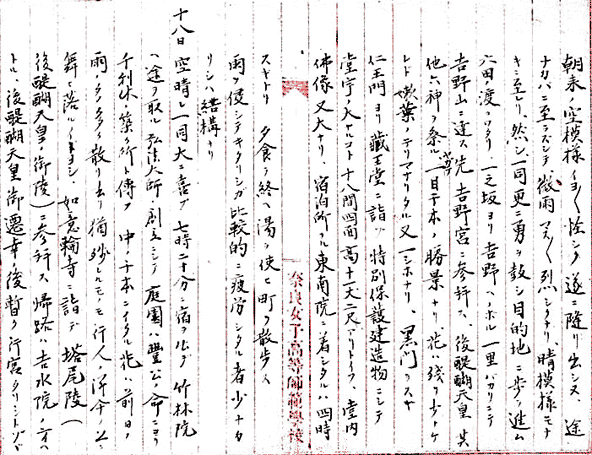 朝来ノ空模様イヨ〱怪シク遂ニ降リ出シヌ、途
ナカバニ至ラズシテ微雨マス〱烈シクナリ、晴模様モナ
キニ至レリ、然レ一同更ニ勇ヲ鼓シ目的地ニ歩ヲ進ム
六田ノ渡ヲワタリ一之坂ヨリ吉野ヘノボル一里バカリニテ
吉野山ニ達ス先ヅ吉野宮ニ参拝ス、後醍醐天皇其
他六神ヲ祭ル一目千本ノ勝景ナリ花ハ残リ少ナケ
レド嫩葉ノテリソナリタル又一シホナリ、黒門ヲスギ
仁王門ヨリ蔵王堂ニ詣ヅ特別保護建造物ニシテ
堂宇ノ大ナルコト十八間四面高十一丈二尺バカリトイフ、堂内
佛像又大ナリ、宿泊所ナル東南院ニ着シタルハ四時
スギナリ夕食ヲ終ヘ湯ヲ使ヒ町ヲ散歩ス
雨ヲ侵シテキタリシガ比較的ニ疲労シタル者少ナカ
リシハ結構ナリ
十八日 空晴レ一同大ニ喜ブ 七時二十分宿ヲ出デ竹林院
ヘ途ヲ取ル弘法大師ノ創立ニシテ庭園ハ豊公ノ命ニヨリ
千利休築ク所ト傳フ 中ノ千本ニイタル花ハ前日ノ
雨ノタメ多ク散リ去リ猶残レルモ行人ノ
舞ヒ落ルイトヨシ、如意輪寺ニ詣デ塔尾陵(
後醍醐天皇ノ御陵)ニ参拝ス帰路ハ吉水院ノ方ヘ
トル、後醍醐天皇御遷幸ノ後暫ク行宮タリシトゾ
奈良女子高等師範學校